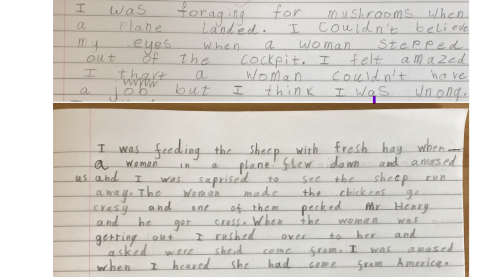 I was foraging for mushrooms when
a plane landed. I Couldn't believe
my eyes when a woman stepped
out of the cockpit. I felt amazed
I a woman couldn't have
a job but I think I was wrong.
I was feeding the sheep with fresh hay when
a woman in a plane flew down and amased
us and I was saprised to see the sheep run
away. The woman made the chickens go
crasy and one of them pecked Mr Henry
and he got cross. When the woman was
getting out I rushed over to her and
asked were sheid come from. I was amased
when I heared she had come from America.